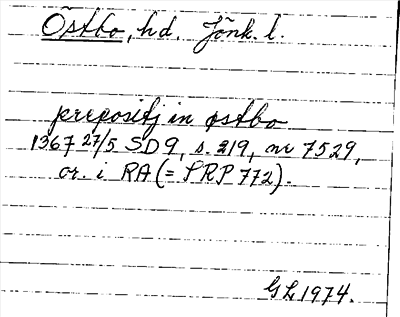 Östbo, hd. Jönk. l.
prepositj in østbo
1367 27/5 SD 9, s. 219, nr 7529,
or. i RA (= PRP 772).
GL 1974.